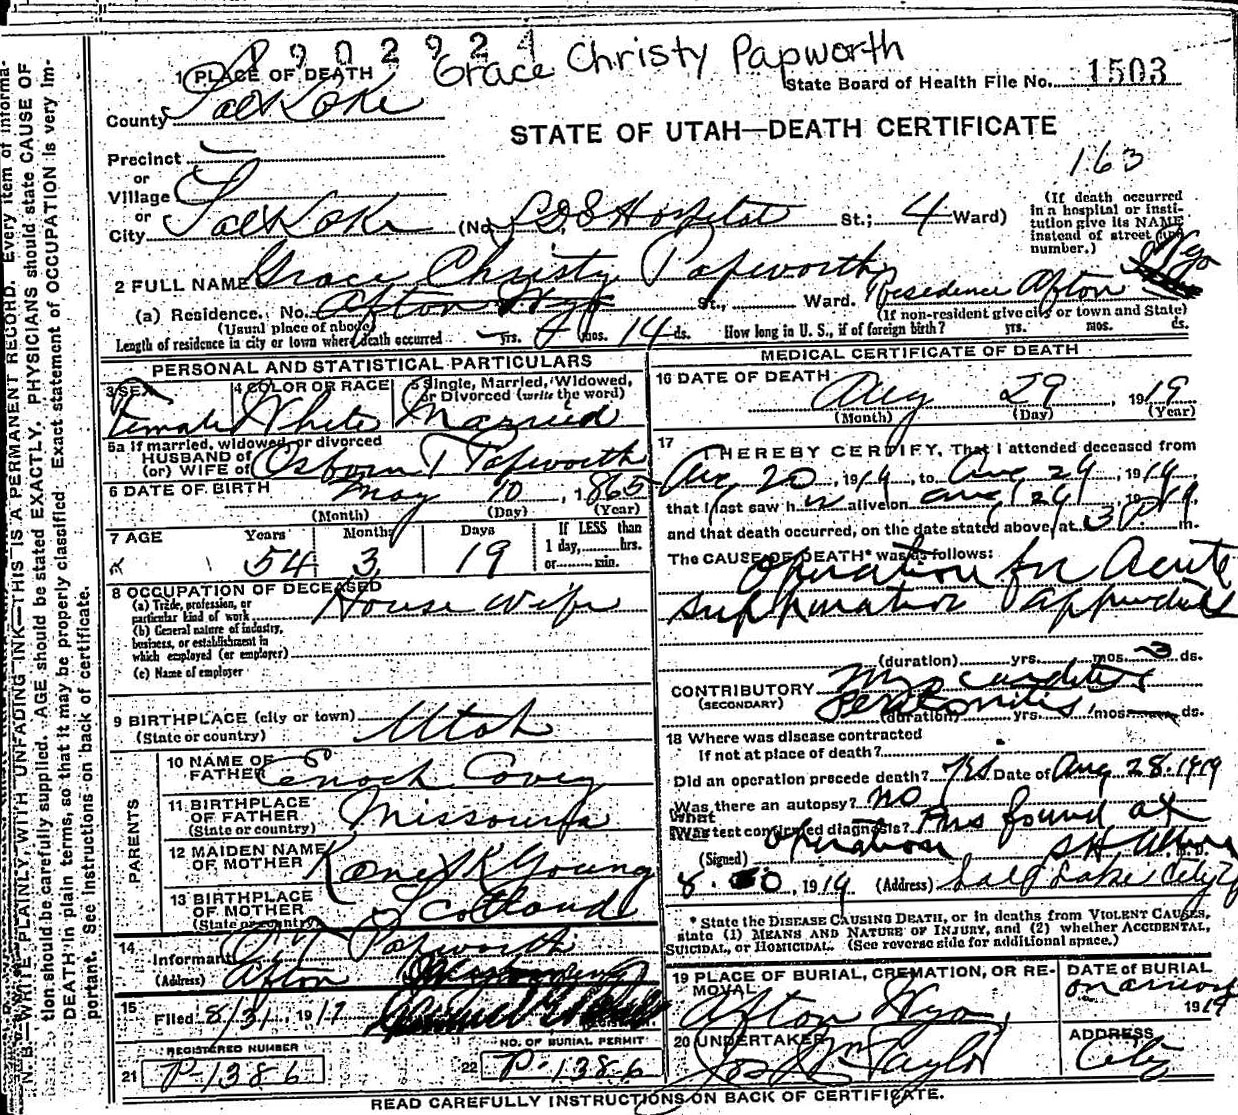 1902924
Grace Christy Papworth
1 PLACE OF DEATH
State Board of Health File No. 1503
County Salt Lake
STATE OF UTAH—DEATH CERTIFICATE
163
Precinct
or
Village
or
City Salt Lake (No. L D S Hospital St.; 4 Ward)
(If death occurred
in a hospital or insti-
tution give its NAME
instead of street and
number.)
2 FULL NAME Grace Christy Papworth
(a) Residence. No. Afton Wyo St., Ward. Residence Afton Wyo
(Usual place of abode) (If non-resident give city or town and State)
Length of residence in city or town where death occurred yrs. mos. 14 ds. How long in U. S., if of foreign birth? yrs. mos. ds.
PERSONAL AND STATISTICAL PARTICULARS
3 SEX 4 COLOR OR RACE 5 Single, Married, Widowed,
or Divorced (write the word)
Female White Married
5a If married, widowed, or divorced
HUSBAND of
(or) WIFE of Osborn T Papworth
6 DATE OF BIRTH May 10, 1865
(Month) (Day) (Year)
7 AGE Years Months Days If LESS than
1 day, hrs.
or min.
54 3 19
8 OCCUPATION OF DECEASED
(a) Trade, profession, or
particular kind of work House Wife
(b) General nature of industry,
business, or establishment in
which employed (or employer)
(c) Name of employer
9 BIRTHPLACE (city or town)
(State or country) Utah
PARENTS
10 NAME OF
FATHER Enoch Covey
11 BIRTHPLACE
OF FATHER
(State or country) Missouri
12 MAIDEN NAME
OF MOTHER Young
13 BIRTHPLACE
OF MOTHER
(State or country) Scotland
14
Informant O T Papworth
(Address) Afton
15
Filed 8/31, 191
REGISTRAR
REGISTERED NUMBER NO. OF BURIAL PERMIT
21 P-1386 22 P-1386
MEDICAL CERTIFICATE OF DEATH
16 DATE OF DEATH Aug 29, 1919
(Month) (Day) (Year)
17 I HEREBY CERTIFY, That I attended deceased from
Aug 20, 1919, to Aug 29, 1919
that I last saw h alive on Aug 29, 1919
and that death occurred, on the date stated above, at 3 P m.
The CAUSE OF DEATH* was as follows:
Operation for Acute
(duration) yrs. mos. 3 ds.
CONTRIBUTORY Myocarditis
(SECONDARY) Peritonitis
(duration) yrs. mos. ds.
18 Where was disease contracted
If not at place of death?
Did an operation precede death? Yes Date of Aug 28, 1919
Was there an autopsy? no
What
test confirmed diagnosis? Pus found at
operation
(Signed) M. D.
8. 30, 1919 (Address) Salt Lake City
* State the DISEASE CAUSING DEATH, or in deaths from VIOLENT CAUSES,
state (1) MEANS AND NATURE OF INJURY, and (2) whether ACCIDENTAL,
SUICIDAL, or HOMICIDAL. (See reverse side for additional space.)
19 PLACE OF BURIAL, CREMATION, OR RE-
MOVAL
Afton Wyo
DATE of BURIAL
on arrival
1919
20 UNDERTAKER
Jos Wm Taylor
ADDRESS
City
READ CAREFULLY INSTRUCTIONS ON BACK OF CERTIFICATE.
N. B.—WRITE PLAINLY, WITH UNFADING INK—THIS IS A PERMANENT RECORD. Every item of informa-
tion should be carefully supplied. AGE should be stated EXACTLY. PHYSICIANS should state CAUSE OF
DEATH in plain terms, so that it may be properly classified. Exact statement of OCCUPATION is very im-
portant. See instructions on back of certificate.